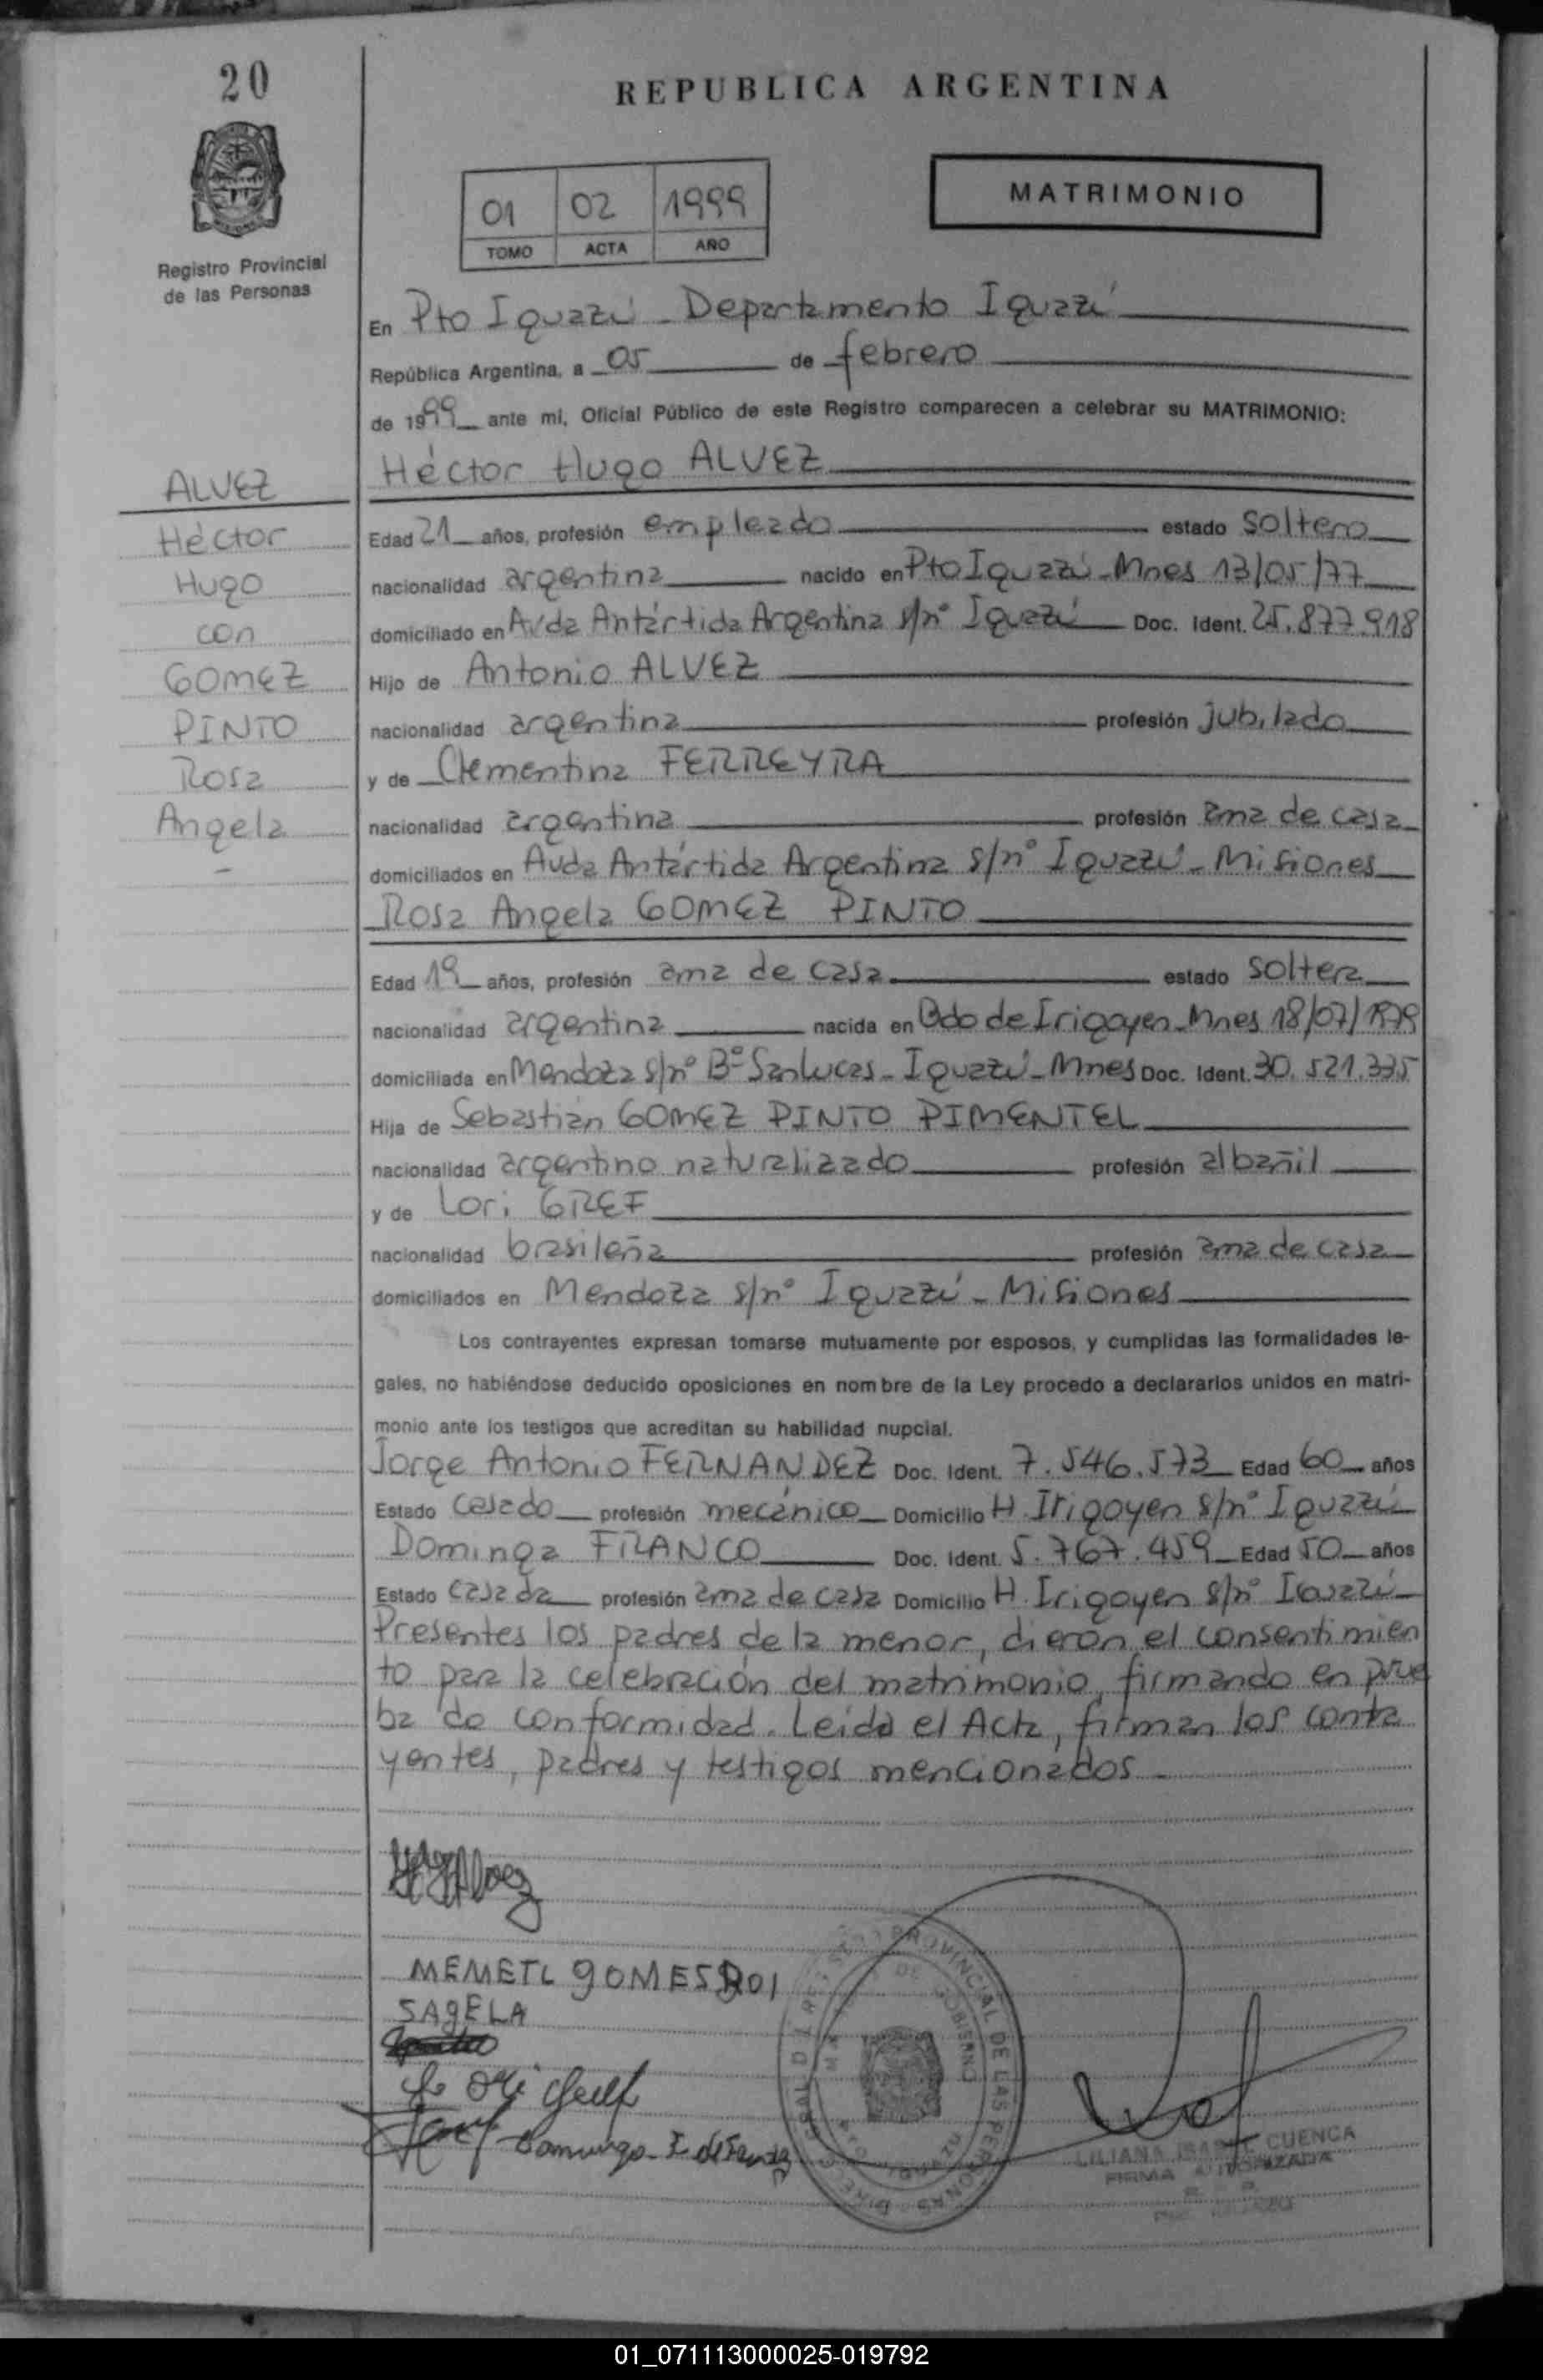 20
REPUBLICA ARGENTINA
Registro Provincial
de las Personas
01 02 1999
TOMO ACTA AÑO
MATRIMONIO
En Pto Iguazú - Departamento Iguazú
República Argentina, a 05 de febrero
de 1999 ante mi, Oficial Público de este Registro comparecen a celebrar su MATRIMONIO:
Héctor Hugo ALVEZ
ALVEZ
Héctor
Hugo
con
GOMEZ
PINTO
Rosa
Angela
-
Edad 21 años, profesión empleado estado soltero
nacionalidad argentina nacido en Pto Iguazú - Mnes 13/05/77
domiciliado en Avda Antártida Argentina s/nº Iguazú Doc. Ident. 25.877.918
Hijo de Antonio ALVEZ
nacionalidad argentina profesión jubilado
y de Clementina FERREYRA
nacionalidad argentina profesión ama de casa
domiciliados en Avda Antártida Argentina s/nº Iguazú - Misiones
Rosa Angela GOMEZ PINTO
Edad 19 años, profesión ama de casa estado soltera
nacionalidad argentina nacida en Bdo de Irigoyen - Mnes 18/07/1979
domiciliada en Mendoza s/nº Bº San Lucas - Iguazú - Mnes Doc. Ident. 30.521.335
Hija de Sebastián GOMEZ PINTO PIMENTEL
nacionalidad argentino naturalizado profesión albañil
y de Lori GREF
nacionalidad brasileña profesión ama de casa
domiciliados en Mendoza s/nº Iguazú - Misiones
Los contrayentes expresan tomarse mutuamente por esposos, y cumplidas las formalidades le-
gales, no habiéndose deducido oposiciones en nombre de la Ley procedo a declararlos unidos en matri-
monio ante los testigos que acreditan su habilidad nupcial.
Jorge Antonio FERNANDEZ Doc. Ident. 7.546.573 Edad 60 años
Estado casado profesión mecánico Domicilio H. Irigoyen s/nº Iguazú
Dominga FRANCO Doc. Ident. 5.767.459 Edad 50 años
Estado casada profesión ama de casa Domicilio H. Irigoyen s/nº Iguazú
Presentes los padres de la menor, dieron el consentimien
to para la celebración del matrimonio, firmando en prue
ba de conformidad. Leída el Acta, firman los contra
yentes, padres y testigos mencionados -
MEMETL GOMES
SAGELA
PROVINCIAL DE LAS PERSONAS
LILIANA ISABEL CUENCA
FIRMA AUTORIZADA
01_071113000025-019792